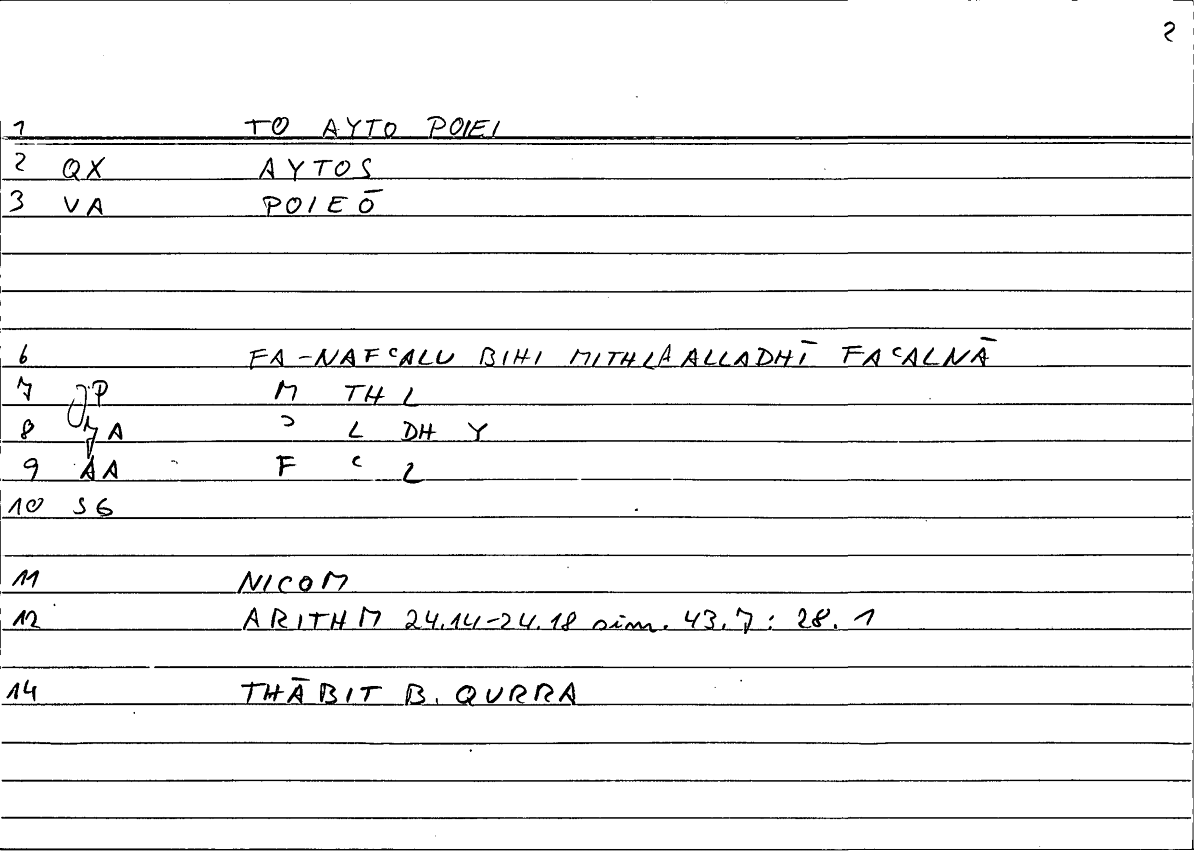 2
1 TO AYTO POIEI
2 QX AYTOS
3 VA POIEŌ
6 FA-NAFᶜALU BIHI MITHLA ALLADHĪ FAᶜALNĀ
7 JP M TH L
8 JA ᵓ L DH Y
9 AA F ᶜ L
10 SG
11 NICOM
12 ARITHM 24.14-24.18 sim. 43.7 : 28.1
14 THĀBIT B. QURRA